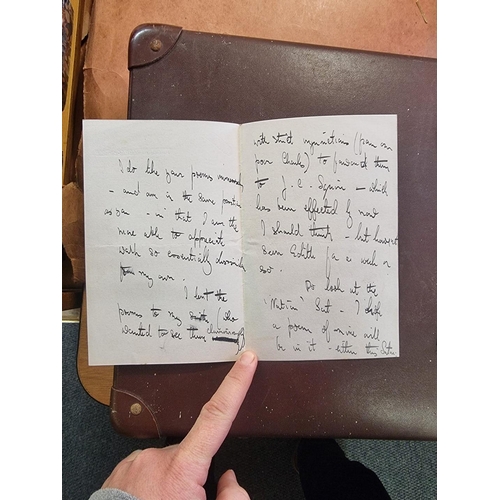 I do like your poems immensely
- and am in the same position
as you - in that I am the
more able to appreciate
work so essentially
from my own.
I sent the
poems to my (who
wanted to see them
with strict injunctions (
poor Charles) to forward them
to J. C. Squire - which
has been effected by now
I should think - but haven't
seen Edith for a week or
so.
Do look at the
"Nation" Sat - I think
a poem of mine will
be in it - either this Satur